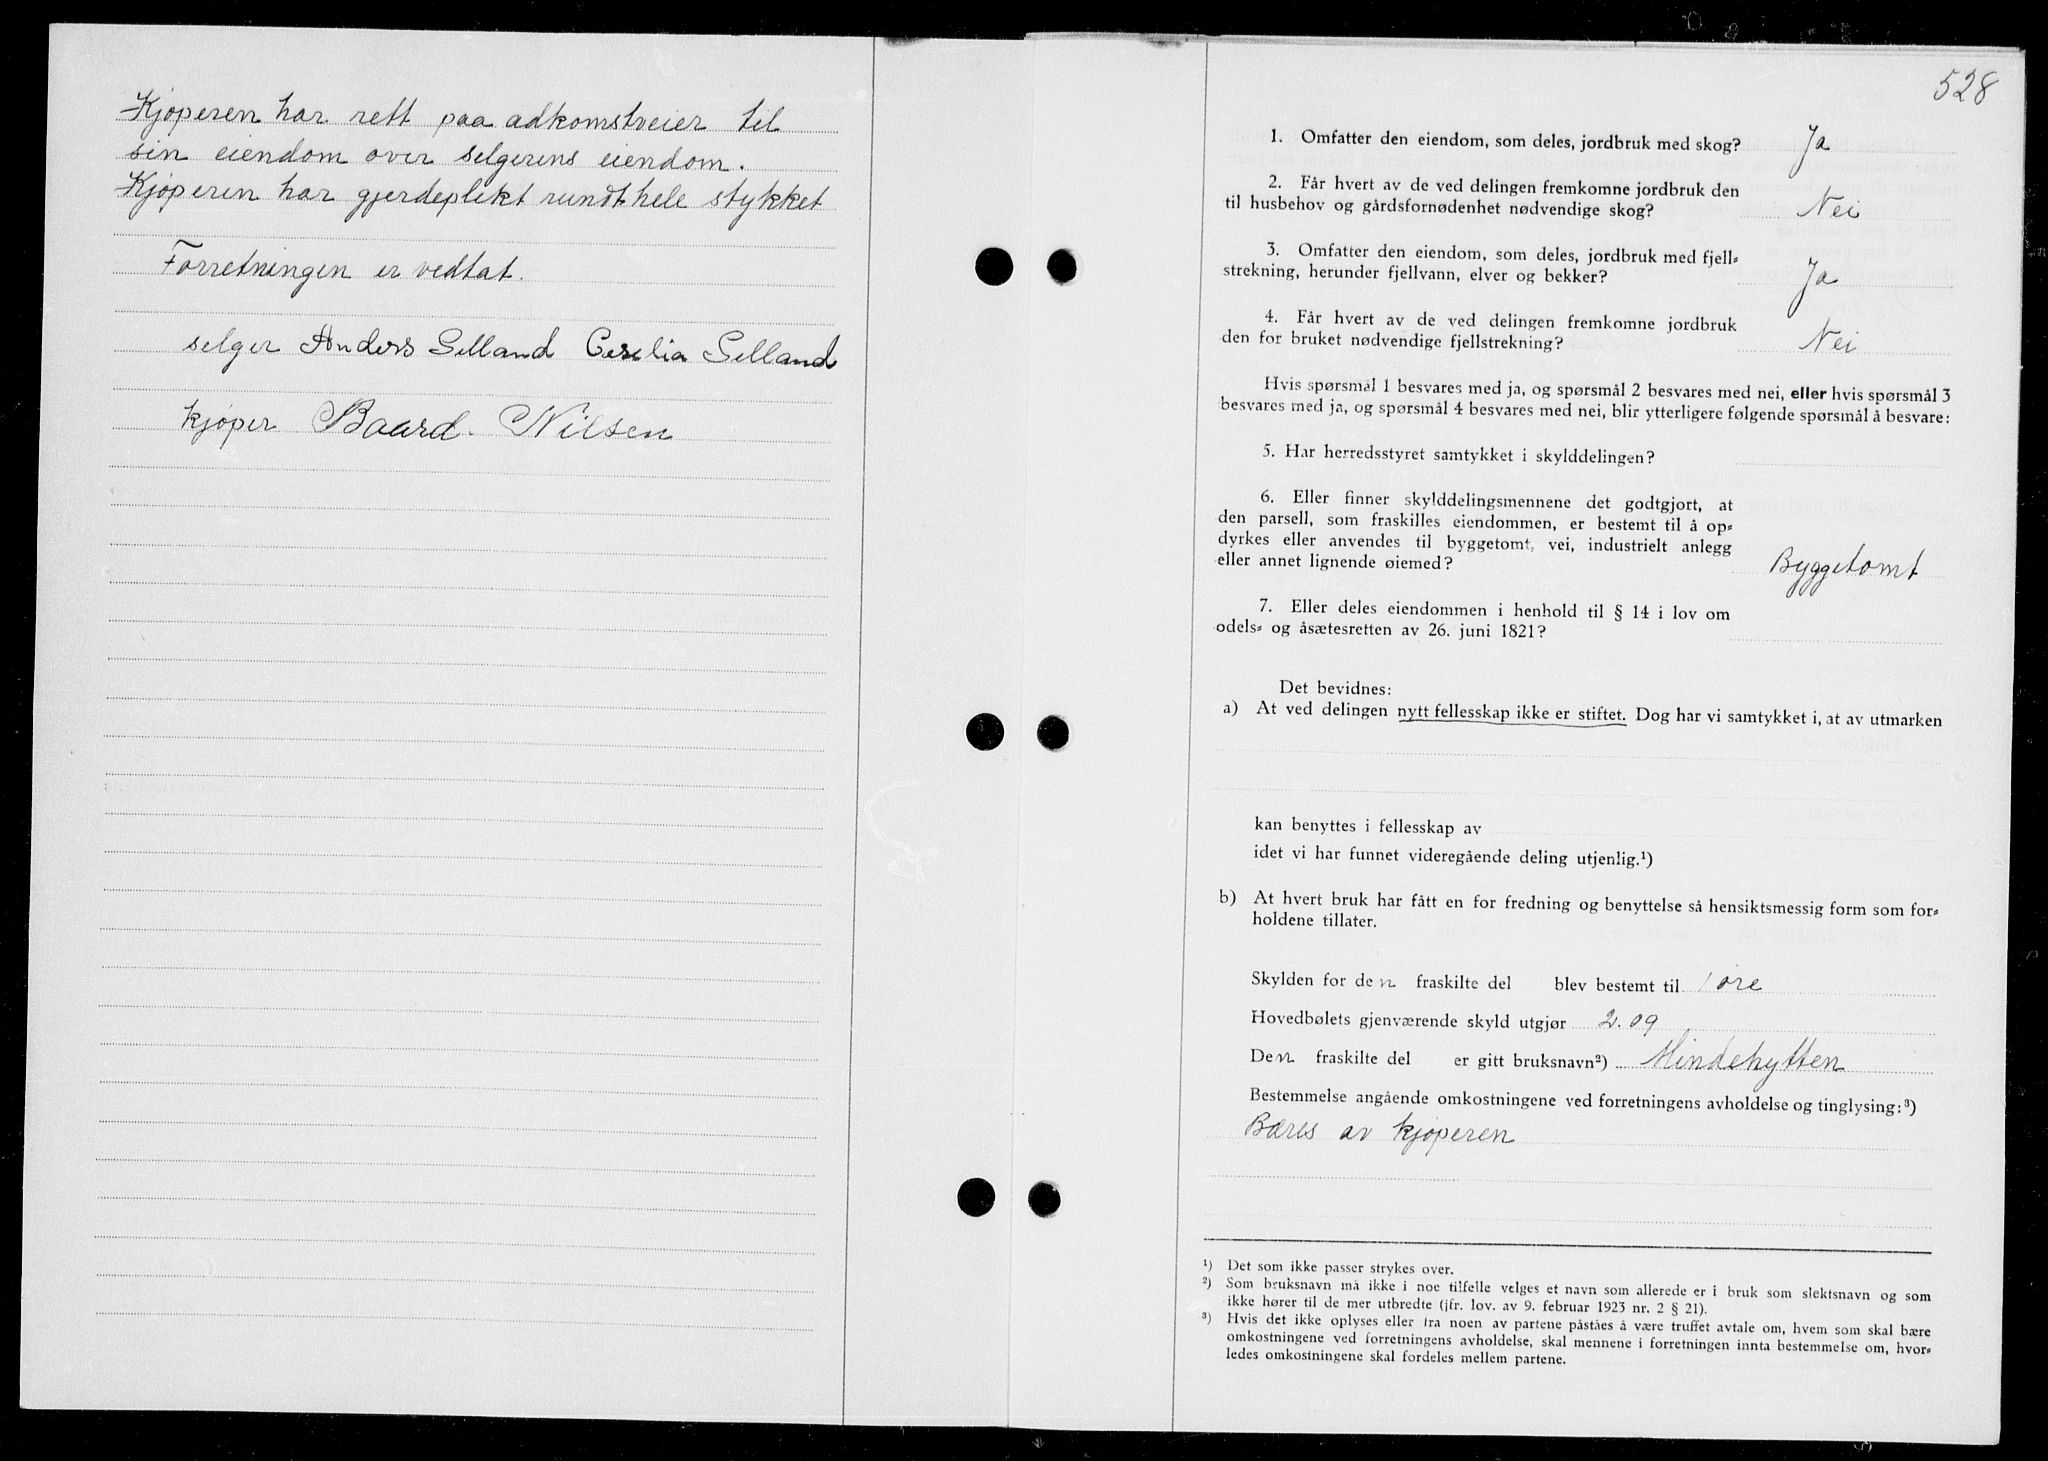 Kjøperen har rett paa adkomstveier til
sin eiendom over selgerens eiendom.
Kjøperen har gjerdeplikt rundt hele stykket
Forretningen er vedtat.
selger Anders Selland Cesilia Selland
kjøper Baard. Nilsen
528
1. Omfatter den eiendom, som deles, jordbruk med skog? Ja
2. Får hvert av de ved delingen fremkomne jordbruk den
til husbehov og gårdsfornødenhet nødvendige skog? Nei
3. Omfatter den eiendom, som deles, jordbruk med fjell=
strekning, herunder fjellvann, elver og bekker? Ja
4. Får hvert av de ved delingen fremkomne jordbruk
den for bruket nødvendige fjellstrekning? Nei
Hvis spørsmål 1 besvares med ja, og spørsmål 2 besvares med nei, eller hvis spørsmål 3
besvares med ja, og spørsmål 4 besvares med nei, blir ytterligere følgende spørsmål å besvare:
5. Har herredsstyret samtykket i skylddelingen?
6. Eller finner skylddelingsmennene det godtgjort, at
den parsell, som fraskilles eiendommen, er bestemt til å op=
dyrkes eller anvendes til byggetomt, vei, industrielt anlegg
eller annet lignende øiemed? Byggetomt
7. Eller deles eiendommen i henhold til § 14 i lov om
odels= og åsætesretten av 26. juni 1821?
Det bevidnes:
a) At ved delingen nytt fellesskap ikke er stiftet. Dog har vi samtykket i, at av utmarken
kan benyttes i fellesskap av
idet vi har funnet videregående deling utjenlig.¹)
b) At hvert bruk har fått en for fredning og benyttelse så hensiktsmessig form som for=
holdene tillater.
Skylden for den fraskilte del blev bestemt til 1 øre
Hovedbølets gjenværende skyld utgjør 2.09
Den fraskilte del er gitt bruksnavn²) Mindehytten
Bestemmelse angående omkostningene ved forretningens avholdelse og tinglysing:³)
Bæres av kjøperen
¹) Det som ikke passer strykes over.
²) Som bruksnavn må ikke i noe tilfelle velges et navn som allerede er i bruk som slektsnavn og som
ikke hører til de mer utbredte (jfr. lov. av 9. februar 1923 nr. 2 § 21).
³) Hvis det ikke oplyses eller fra noen av partene påståes å være truffet avtale om, hvem som skal bære
omkostningene ved forretningens avholdelse, skal mennene i forretningen innta bestemmelse om, hvor=
ledes omkostningene skal fordeles mellem partene.